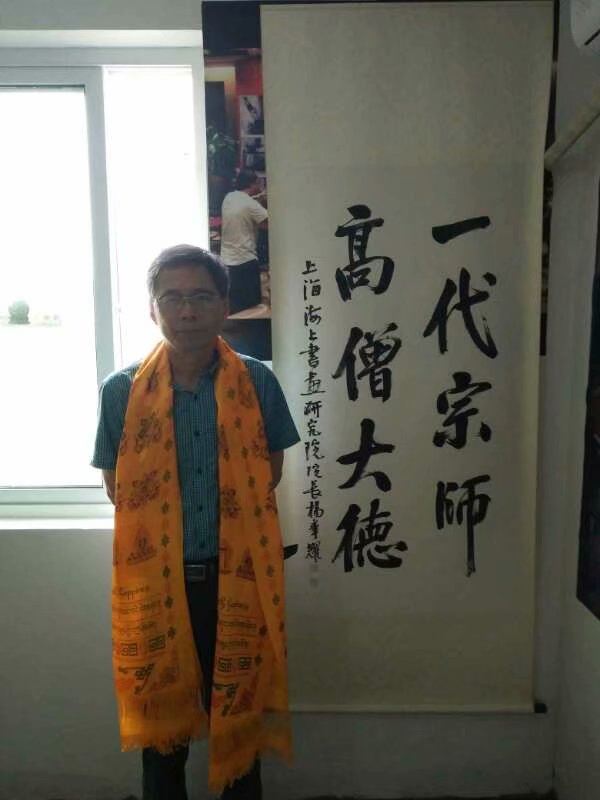 一代宗师
高僧大德
上海海上書画研究院院長楊聿耀